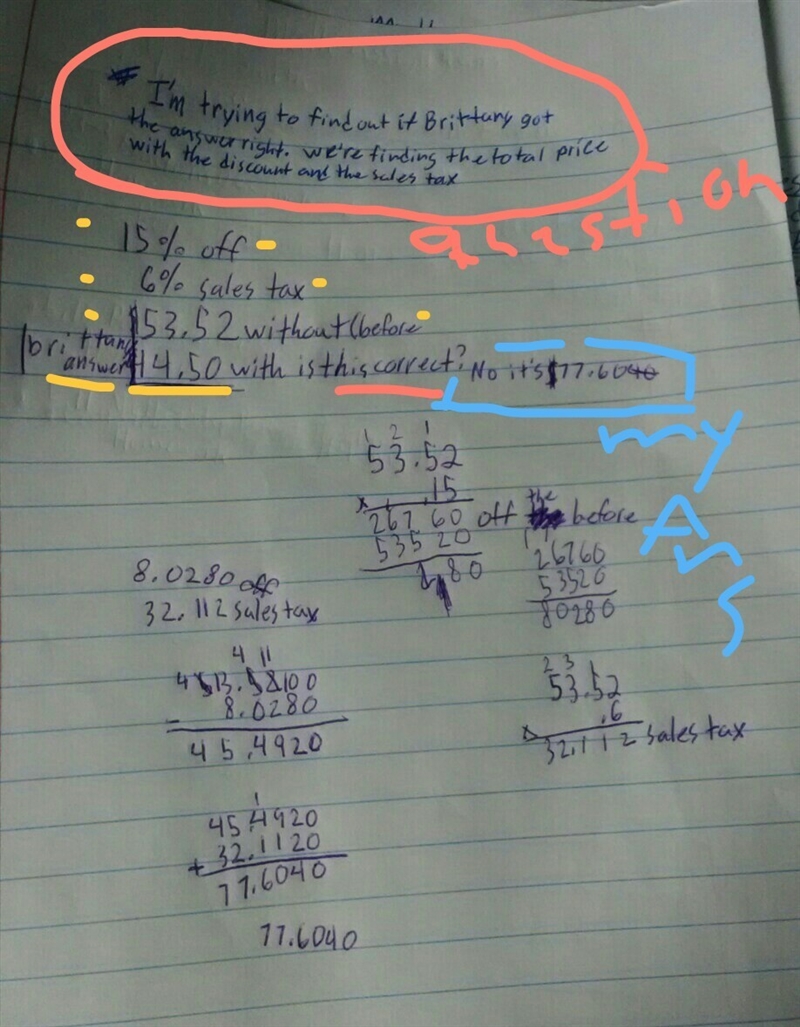 I'm trying to find out if Brittany got
the answer right. we're finding the total price
with the discount and the sales tax
question
15% off
6% sales tax
$53.52 without (before
brittany answer $14.50 with is this correct? No it's $77.6040
my Ans
1 2 1
53.52
x .15
267 60 off the before
535 20
80
1 1
26760
53520
80280
8.0280 off
32.112 sales tax
4 11
8.0280
45.4920
2 3 1
53.52
x .6
32.112 sales tax
1
45.4920
+ 32.1120
77.6040
77.6040